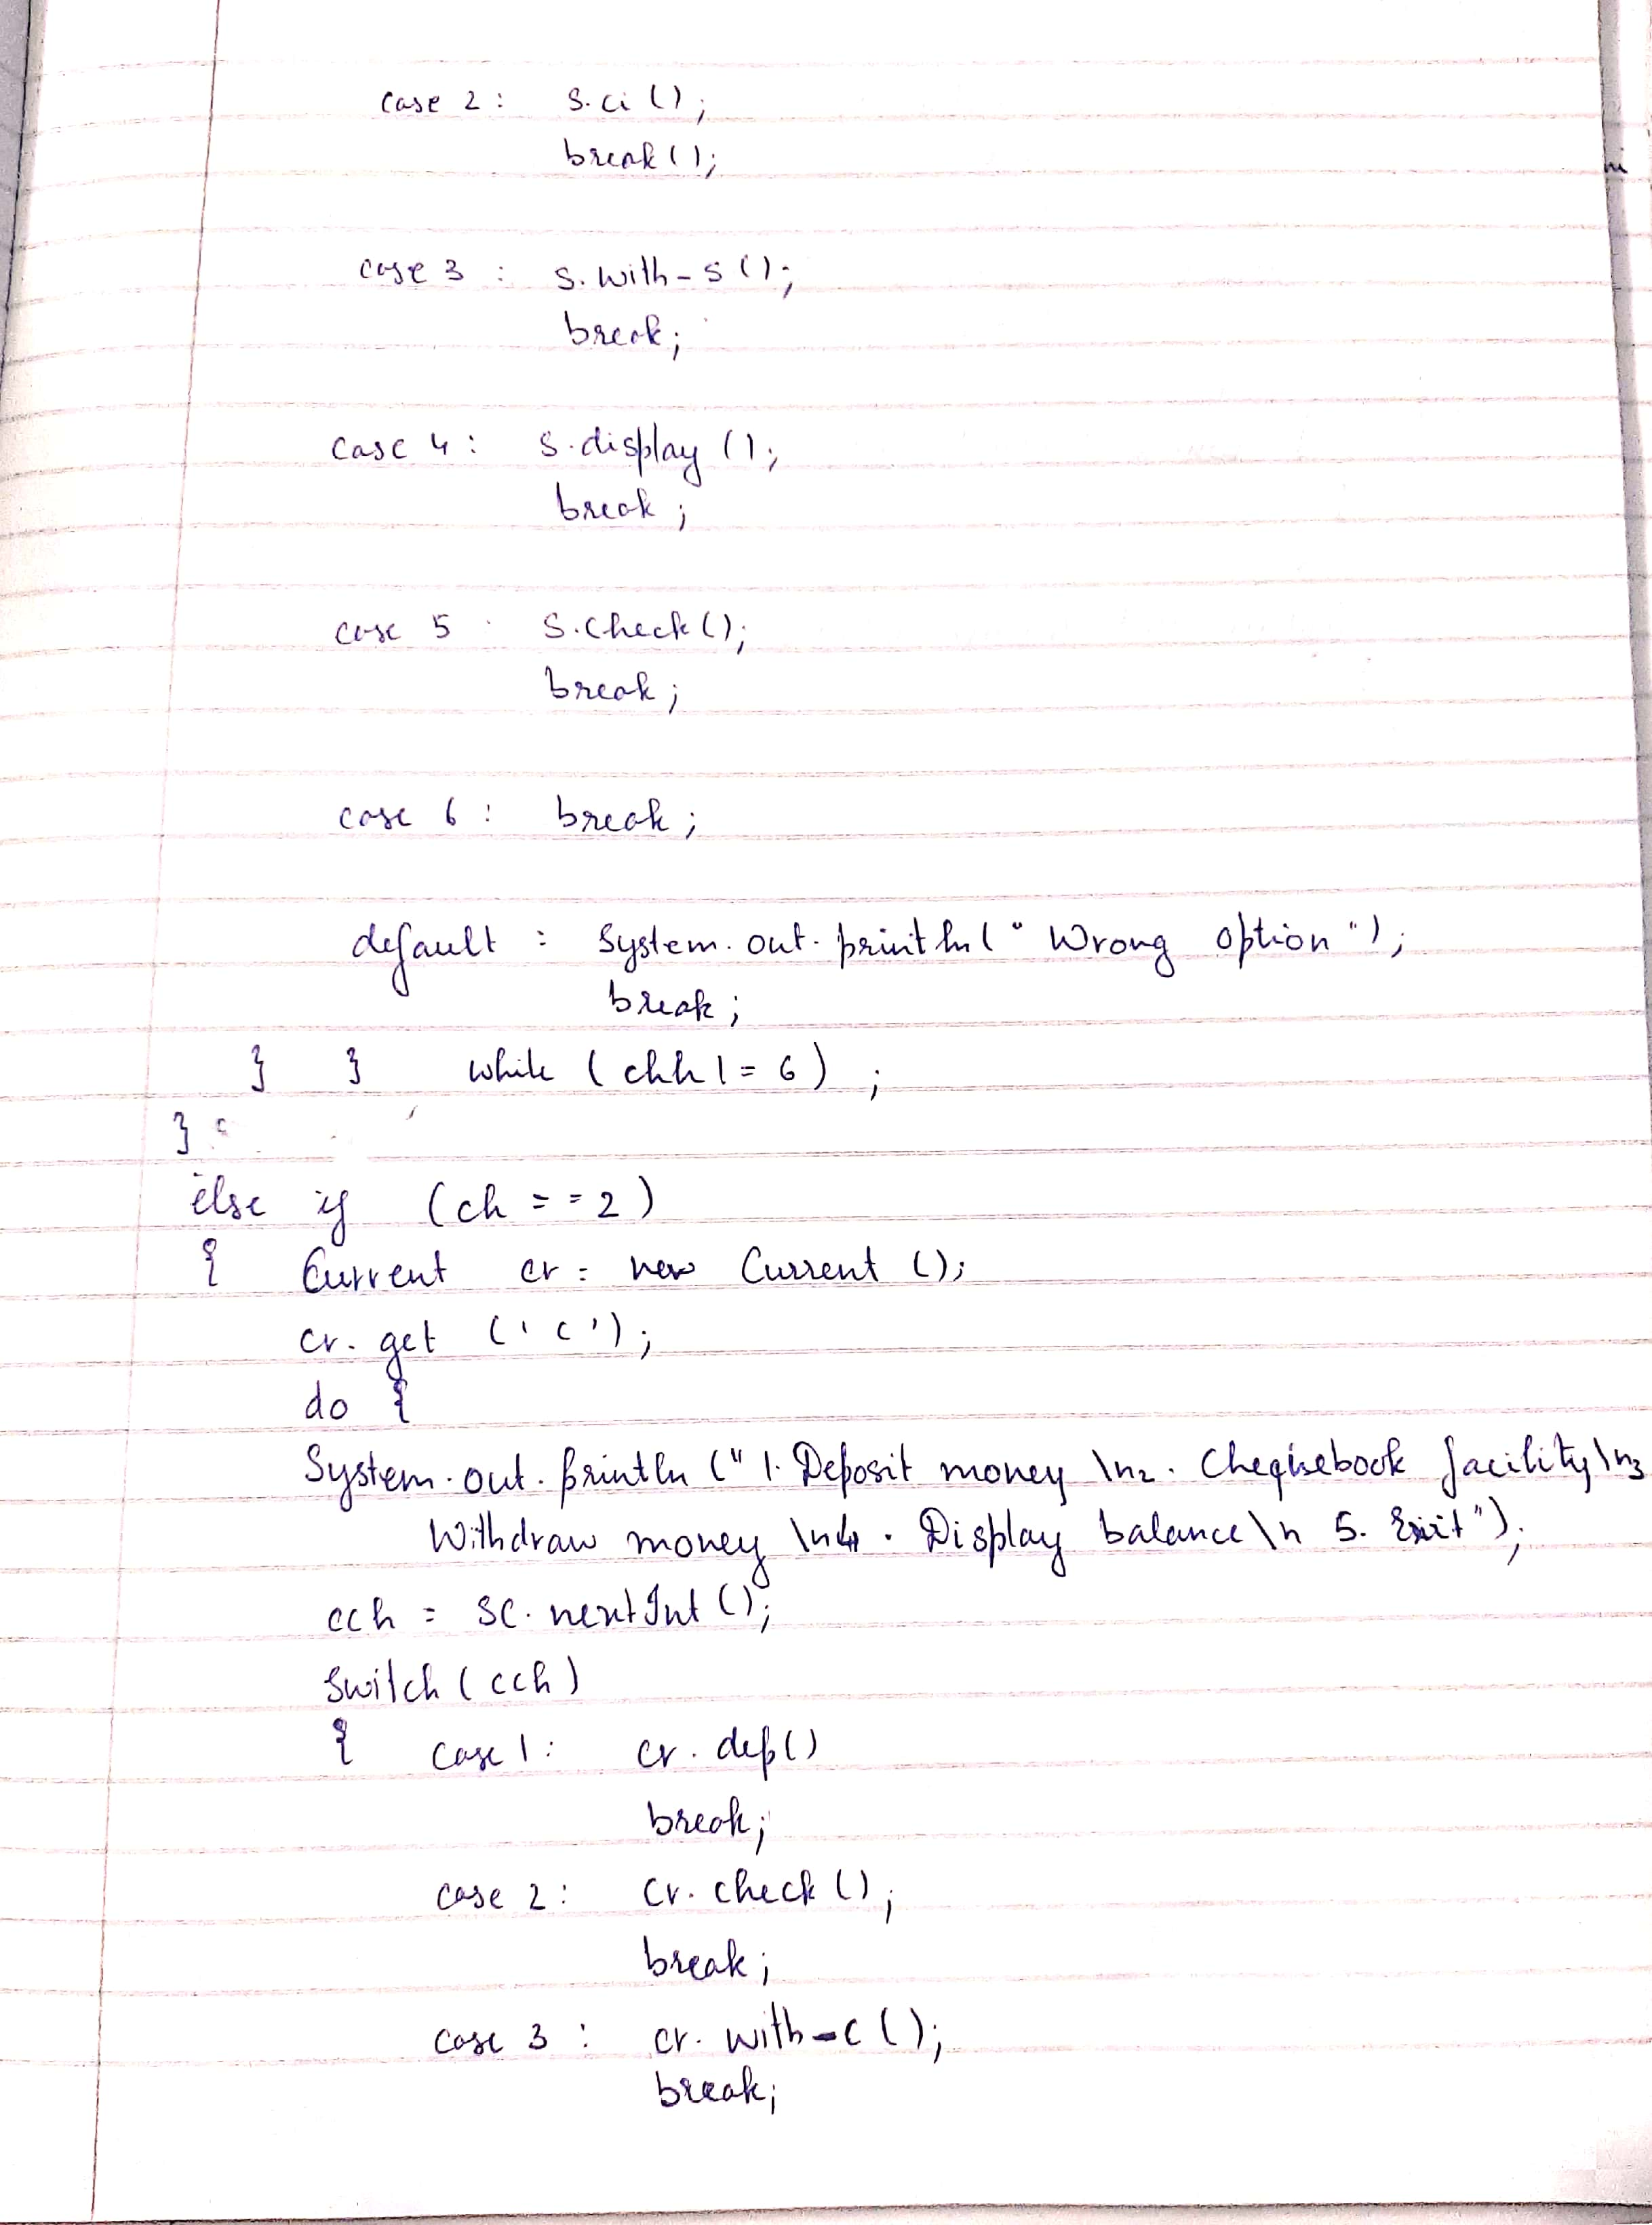 case 2 : s.ci ();
break ();
case 3 : s.with-s ();
break;
case 4 : s.display ();
break ;
case 5 . s.check ();
break ;
case 6 : break ;
default : System.out.println (" Wrong option ");
break ;
} } while ( chh != 6 ) ;
}
else if (ch = = 2 )
{ Current cr = new Current ();
cr. get ('C');
do {
System.out.println (" 1. Deposit money \n2. Chequebook facility \n3
Withdraw money \n4 . Display balance \n 5. Exit ");
cch = sc. nextInt ();
switch ( cch )
{ case 1 : cr. dep()
break;
case 2 : cr. check ();
break ;
case 3 : cr. with-c ();
break;